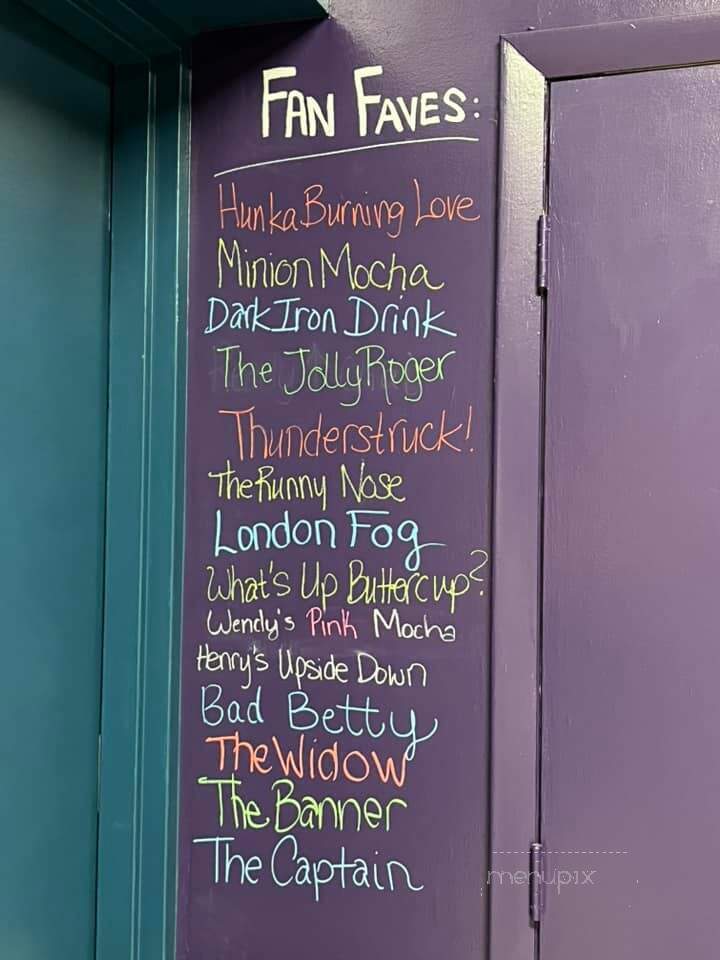 FAN FAVES:
Hunka Burning Love
Minion Mocha
Dark Iron Drink
The Jolly Roger
Thunderstruck!
The Runny Nose
London Fog
What's Up Buttercup?
Wendy's Pink Mocha
Henry's Upside Down
Bad Betty
The Widow
The Banner
The Captain
menupix